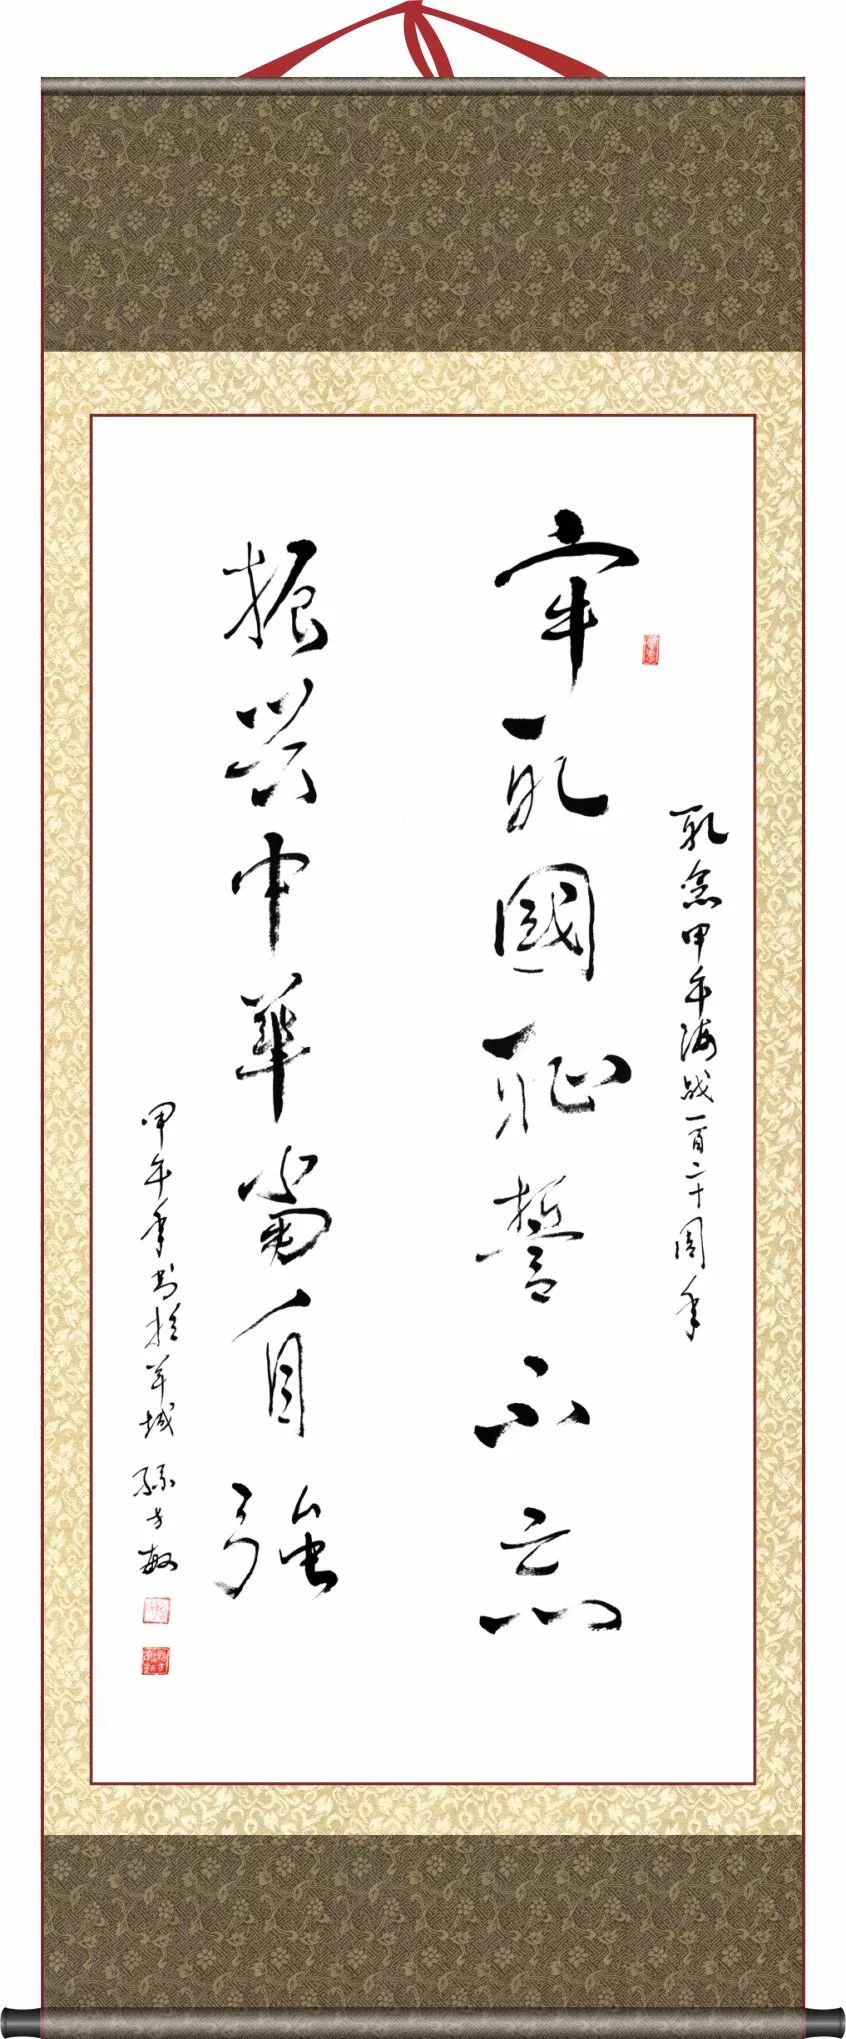 紀念甲午海战一百二十周年
牢記國耻誓不忘
振兴中華當自強
甲午年书於羊城 孫方敏